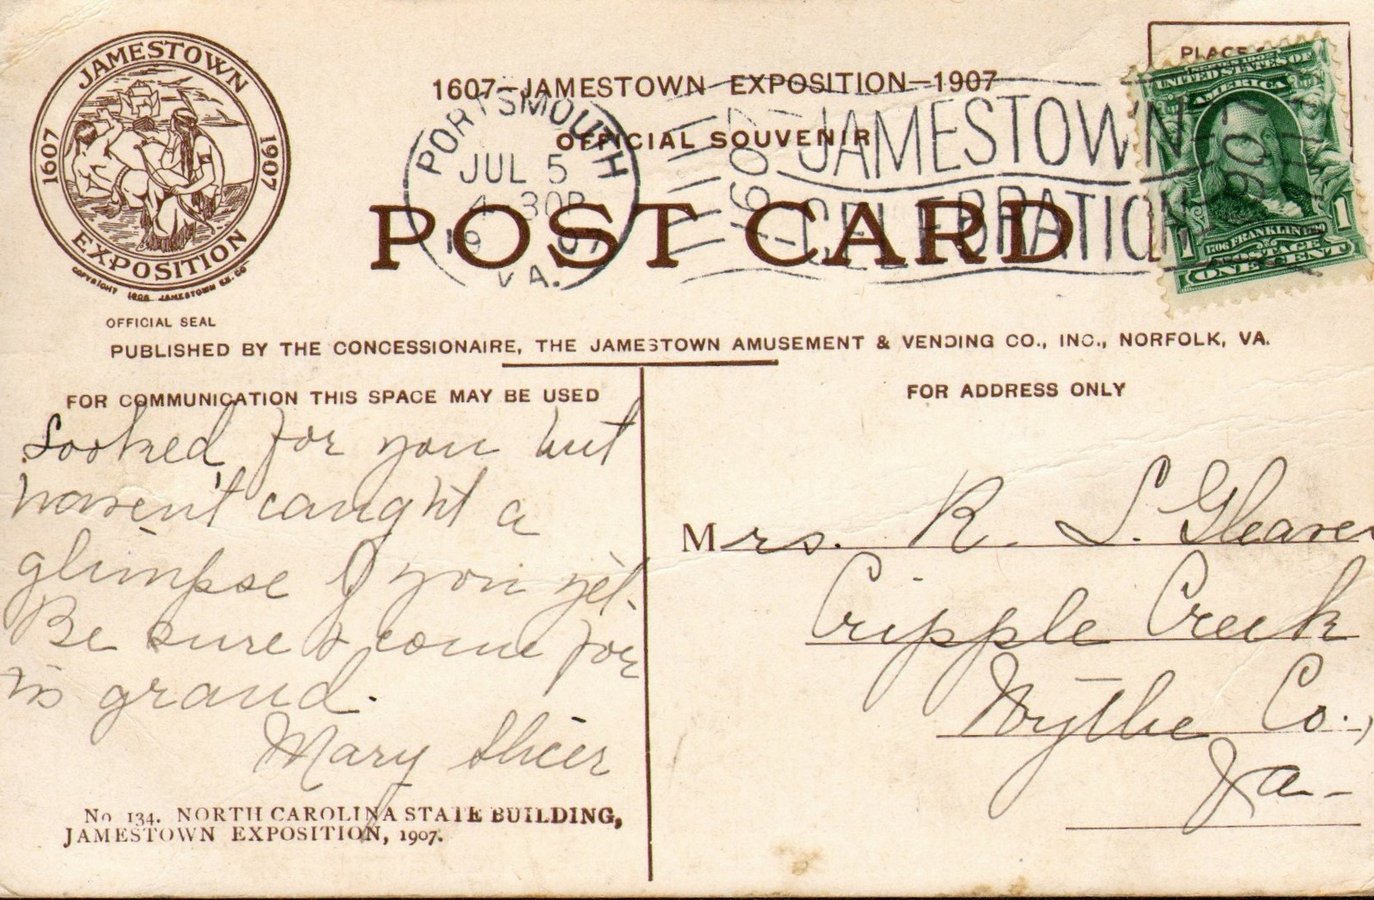 JAMESTOWN
1607 1907
EXPOSITION
COPYRIGHT 1906 JAMESTOWN EX. CO
OFFICIAL SEAL
1607—JAMESTOWN EXPOSITION—1907
OFFICIAL SOUVENIR
POST CARD
PORTSMOUTH
JUL 5
4 30P
19 07
VA.
1607 JAMESTOWN 1907
CELEBRATION
PLACE
SERIES 1902
UNITED STATES OF
AMERICA
1706 FRANKLIN 1790
1 POSTAGE 1
ONE CENT
PUBLISHED BY THE CONCESSIONAIRE, THE JAMESTOWN AMUSEMENT & VENDING CO., INC., NORFOLK, VA.
FOR COMMUNICATION THIS SPACE MAY BE USED
Looked for you but
haven't caught a
glimpse of you yet.
Be sure & come for
tis grand.
Mary Slicer
No 134. NORTH CAROLINA STATE BUILDING,
JAMESTOWN EXPOSITION, 1907.
FOR ADDRESS ONLY
Mrs. R. S. Gleaves
Cripple Creek
Wythe Co.,
Va-